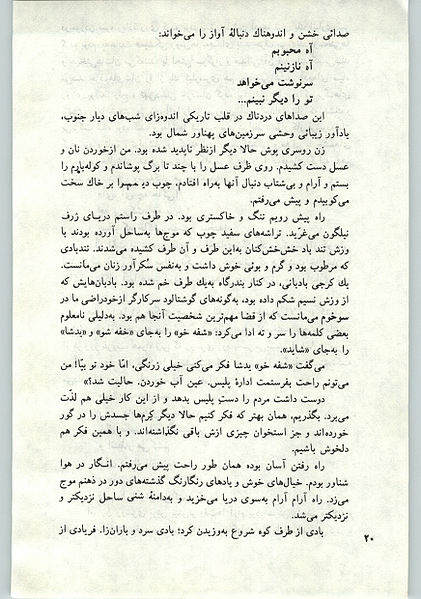 صدائی خشن و اندوهناك دنبالهٔ آواز را می‌خواند:
آه محبوبم
آه نازنینم
سرنوشت می‌خواهد
تو را دیگر نبینم...
این صداهای دردناك در قلب تاریکی اندوه‌زای شب‌های دیار جنوب،
یادآور زیبائی وحشی سرزمین‌های پهناور شمال بود.
زن روسری پوش حالا دیگر ازنظر ناپدید شده بود. من ازخوردن نان و
عسل دست کشیدم. روی ظرف عسل را با چند تا برگ پوشاندم و کوله‌بارم را
بستم و آرام و بی‌شتاب دنبال آنها به‌راه افتادم. چوب دستیم را بر خاك سخت
می‌کوبیدم و پیش می‌رفتم.
راه پیش رویم تنگ و خاکستری بود. در طرف راستم دریـای ژرف
نیلگون می‌غرّید. تراشه‌های سفید چوب که موج‌ها به‌ساحل آورده بودند با
وزش تند باد خش‌خش‌کنان به‌این طرف و آن طرف کشیده می‌شدند. تندبادی
که مرطوب بود و گرم و بوئی خوش داشت و به‌نفس سُکرآور زنان می‌مانست.
یك کرجی بادبانی، در کنار بندرگاه به‌یك طرف خم شده بود. بادبان‌هایش که
از وزش نسیم شکم داده بود، به‌گونه‌های گوشتالود سرکارگر ازخودراضی ما در
سوخوم می‌مانست که از قضا مهم‌ترین شخصیت آنجا هم بود. به‌دلیلی نامعلوم
بعضی کلمه‌ها را سر و ته ادا می‌کرد: «شفه خو» را به‌جای «خفه شو» و «یدشا»
را به‌جای «شاید».
می‌گفت «شفه خو» یدشا فکر می‌کنی خیلی زرنگی، امّا خود تو بپّا! من
می‌تونم راحت بفرستمت ادارهٔ پلیس. عین آب خوردن. حالیت شد؟»
دوست داشت مردم را دستِ پلیس بدهد و از این کار خیلی هم لذّت
می‌برد. بگذریم، همان بهتر که فکر کنیم حالا دیگر کِرم‌ها جسدش را در گور
خورده‌اند و جز استخوان چیزی ازش باقی نگذاشته‌اند. و با همین فکر هم
دلخوش باشیم.
راه رفتن آسان بود. همان طور راحت پیش می‌رفتم. انـگار در هوا
شناور بودم. خیال‌های خوش و یادهای رنگارنگ گذشته‌های دور در ذهنم موج
می‌زد. راه آرام آرام به‌سوی دریا می‌خزید و به‌دامنهٔ شنی ساحل نزدیکتر و
نزدیکتر می‌شد.
بادی از طرف کوه شروع به‌وزیدن کرد؛ بادی سرد و باران‌زا. فریادی از
۲۰